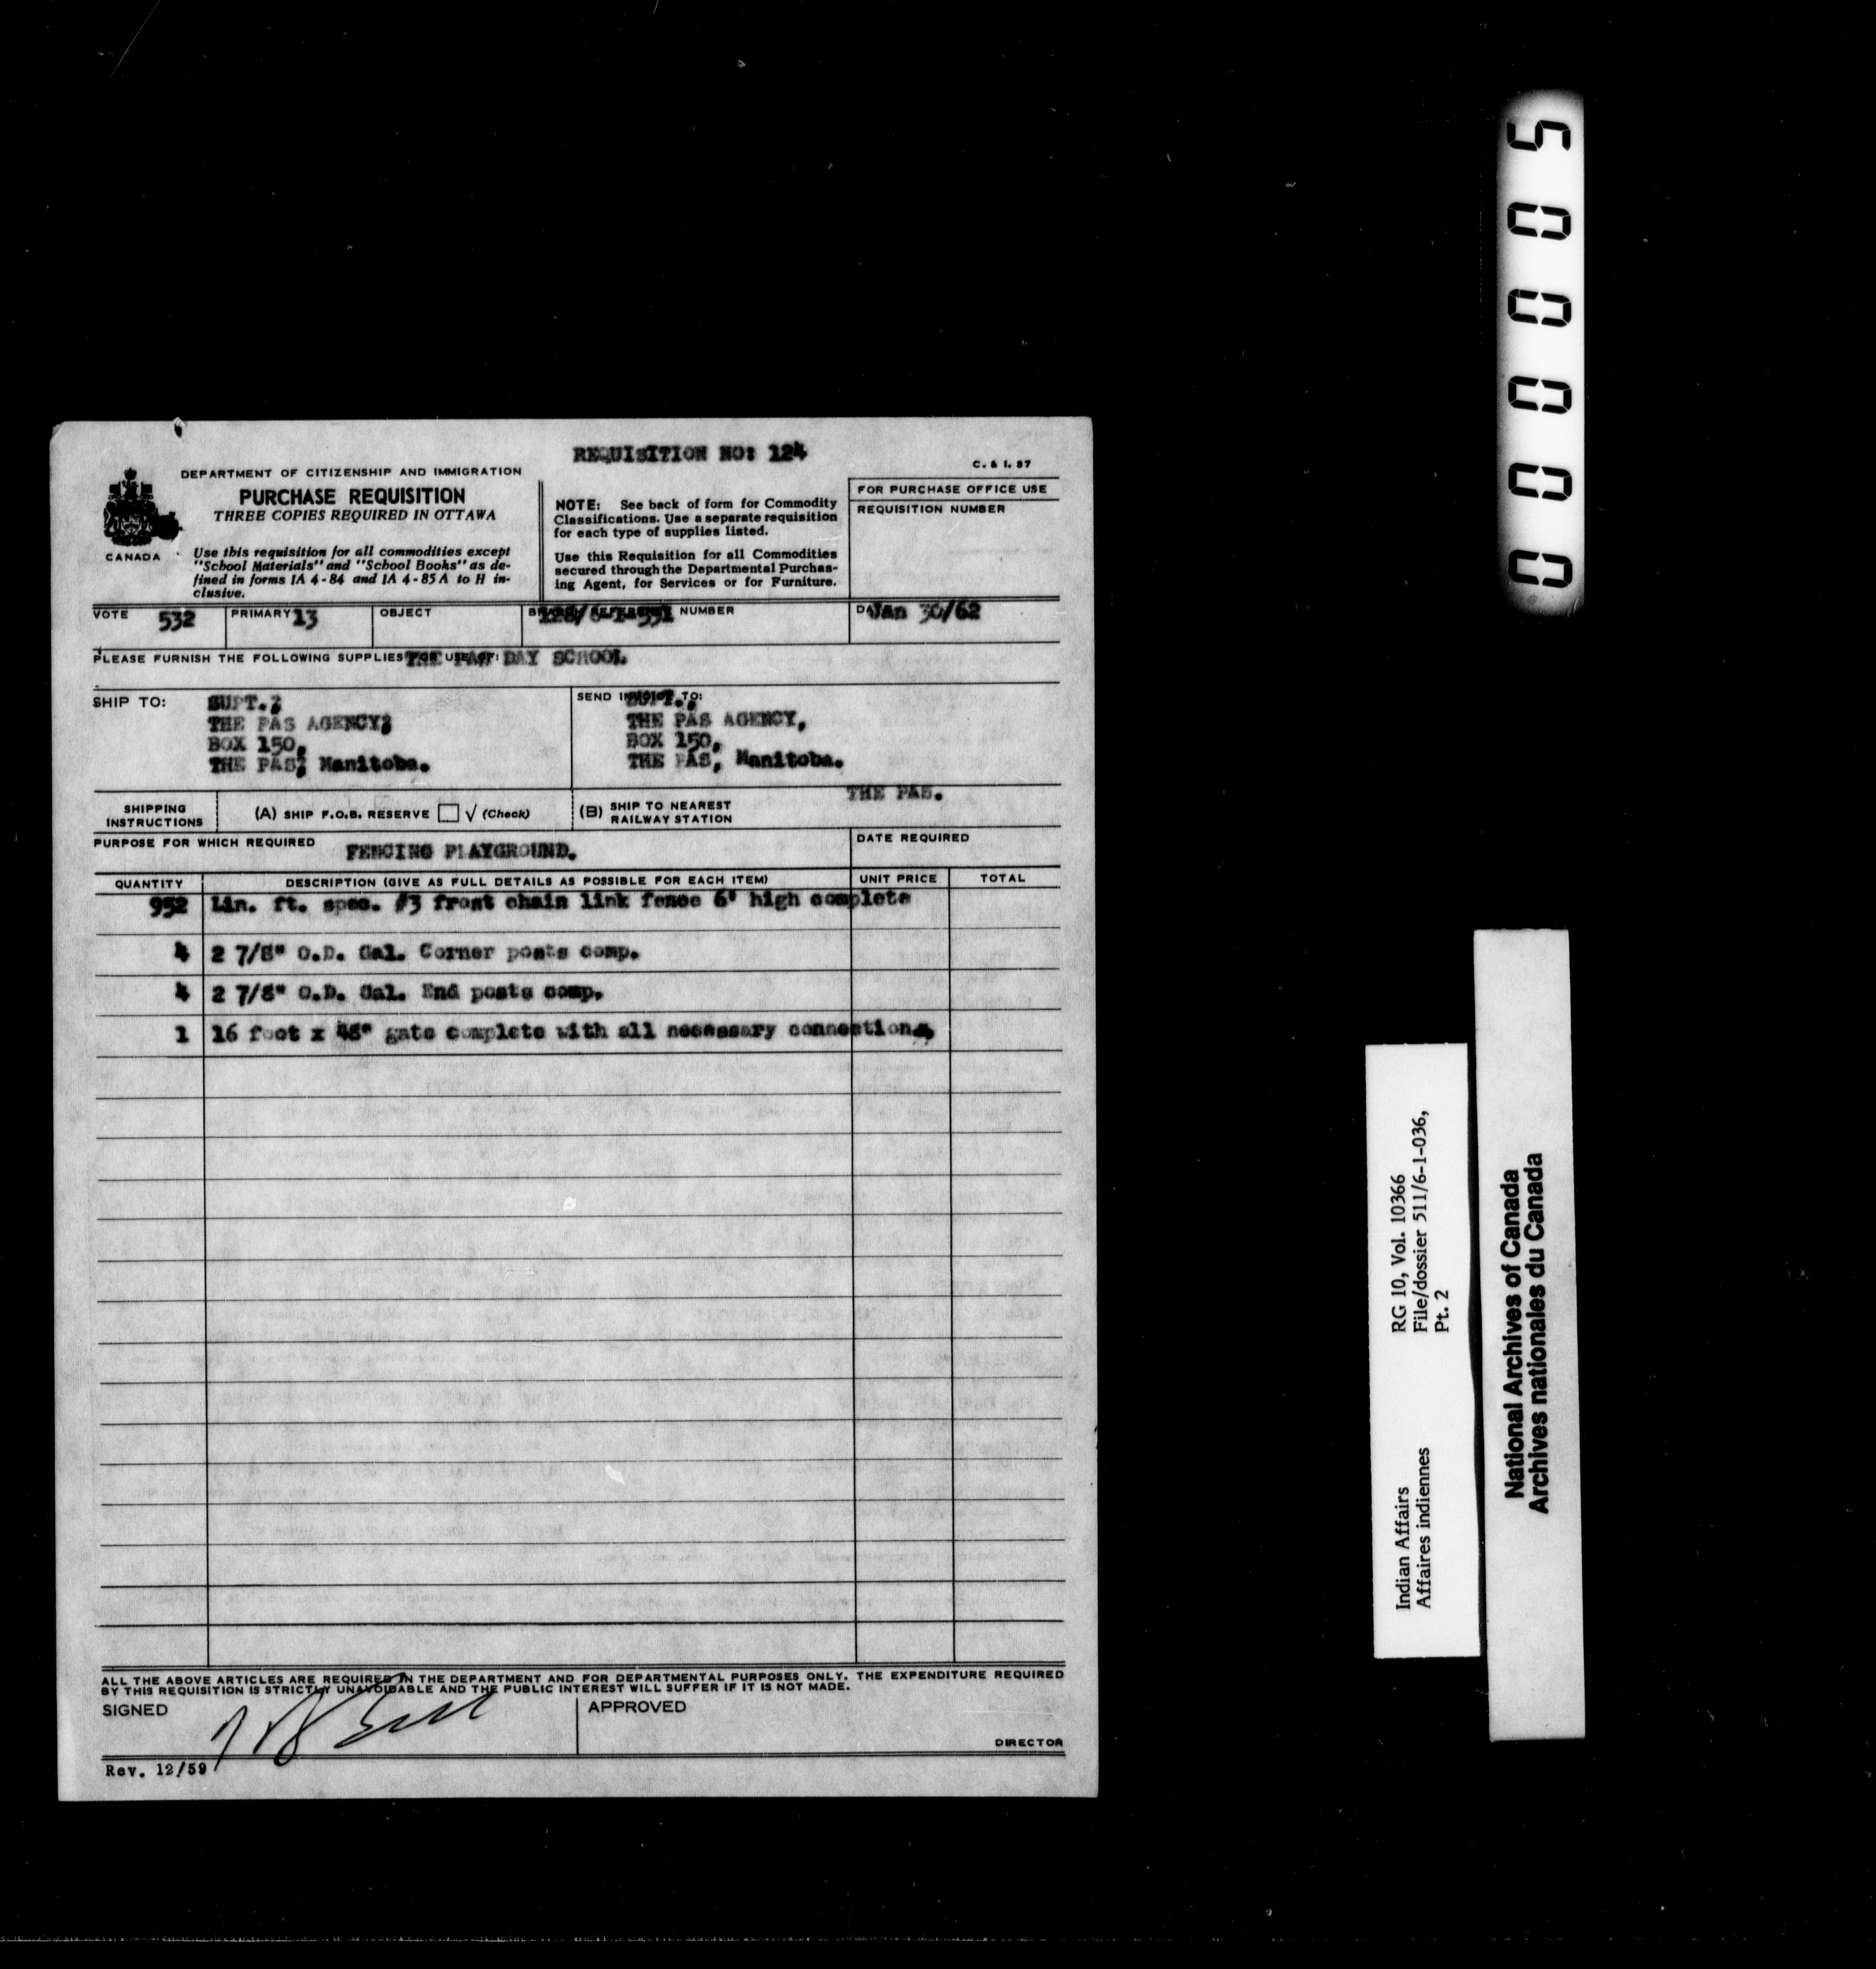 REQUISITION NO: 124
C. & I. 37
DEPARTMENT OF CITIZENSHIP AND IMMIGRATION
PURCHASE REQUISITION
THREE COPIES REQUIRED IN OTTAWA
CANADA
Use this requisition for all commodities except
"School Materials" and "School Books" as de-
fined in forms IA 4-84 and IA 4-85 A to H in-
clusive.
NOTE: See back of form for Commodity
Classifications. Use a separate requisition
for each type of supplies listed.
Use this Requisition for all Commodities
secured through the Departmental Purchas-
ing Agent, for Services or for Furniture.
FOR PURCHASE OFFICE USE
REQUISITION NUMBER
VOTE 532
PRIMARY 13
OBJECT
BRANCH REFERENCE NUMBER
Jan 30/62
PLEASE FURNISH THE FOLLOWING SUPPLIES FOR USE OF: THE PAS DAY SCHOOL
SHIP TO: SUPT.;
THE PAS AGENCY;
BOX 150,
THE PAS; Manitoba.
SEND INVOICE TO: SUPT.,
THE PAS AGENCY,
BOX 150,
THE PAS, Manitoba.
SHIPPING
INSTRUCTIONS
(A) SHIP F.O.B. RESERVE √ (Check)
(B) SHIP TO NEAREST
RAILWAY STATION
THE PAS.
PURPOSE FOR WHICH REQUIRED FENCING PLAYGROUND.
DATE REQUIRED
QUANTITY DESCRIPTION (GIVE AS FULL DETAILS AS POSSIBLE FOR EACH ITEM) UNIT PRICE TOTAL
952 Lin. ft. spec. #3 frost chain link fence 6' high complete
4 2 7/8" O.D. Gal. Corner posts comp.
4 2 7/8" O.D. Gal. End posts comp.
1 16 foot x 48" gate complete with all necessary connections
ALL THE ABOVE ARTICLES ARE REQUIRED IN THE DEPARTMENT AND FOR DEPARTMENTAL PURPOSES ONLY. THE EXPENDITURE REQUIRED
BY THIS REQUISITION IS STRICTLY UNAVOIDABLE AND THE PUBLIC INTEREST WILL SUFFER IF IT IS NOT MADE.
SIGNED
APPROVED
DIRECTOR
Rev. 12/59
000005
Indian Affairs
Affaires indiennes
RG 10, Vol. 10366
File/dossier 511/6-1-036,
Pt. 2
National Archives of Canada
Archives nationales du Canada